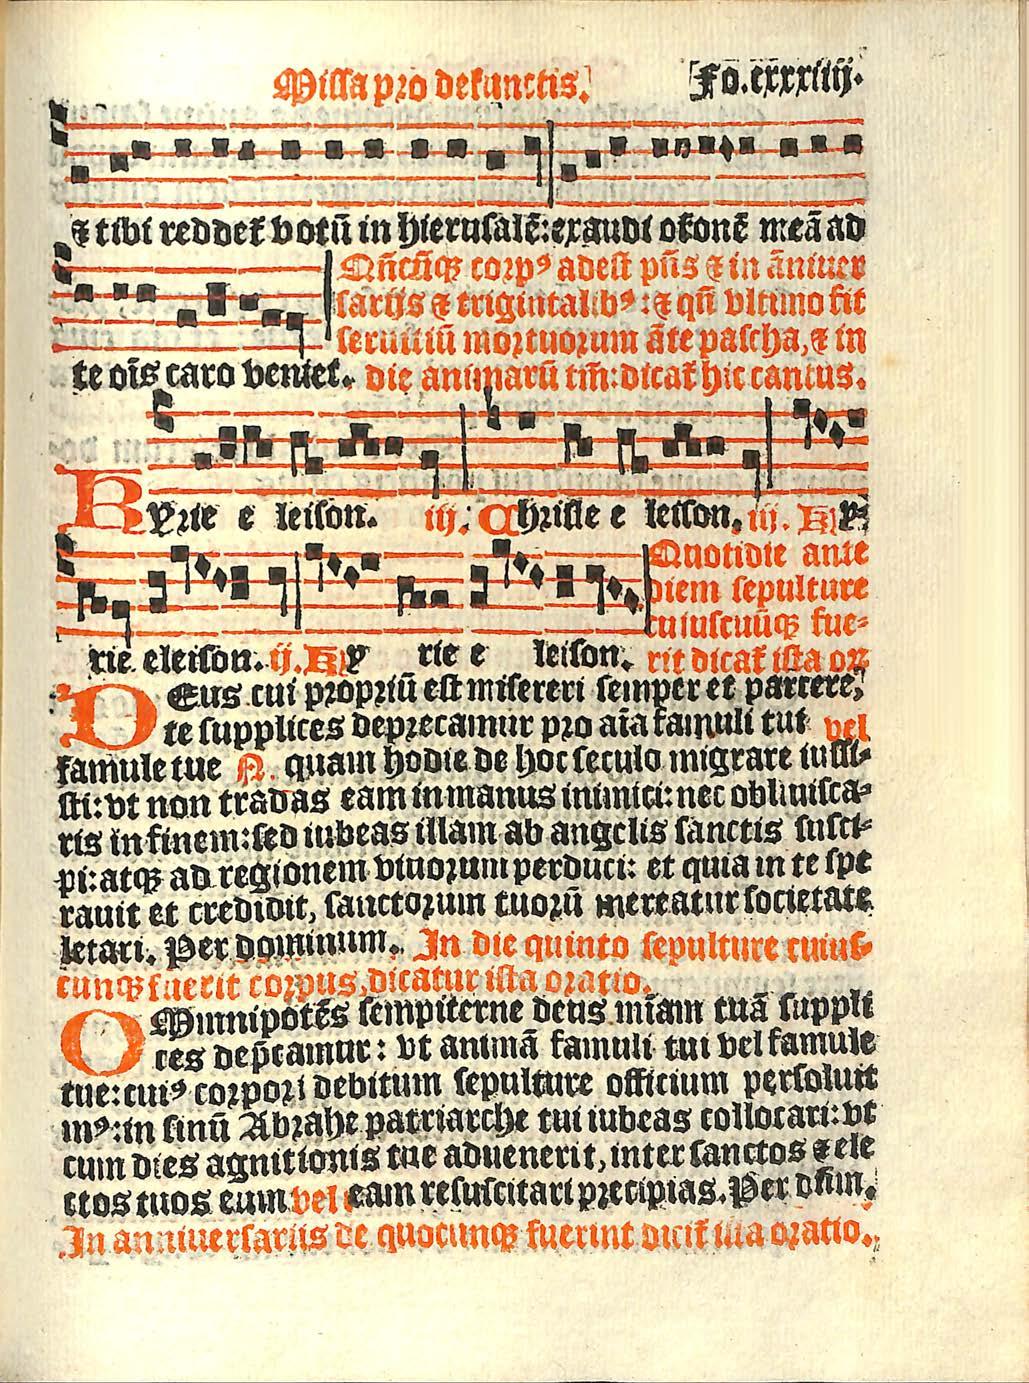 Missa pro defunctis.
Fo.cxxxiiij.
⁊ tibi reddet᷑ votū in hierusalē: exaudi ořonē meā ad
Qñcūq; corpꝰ adest pn̄s ⁊ in āniuer
sarijs ⁊ trigintalibꝰ: ⁊ qn̄ vltimo fit
seruitiū mortuorum āte pascha, ⁊ in
te oīs caro veniet. die animarū tm̄: dicat᷑ hic cantus.
Kyrie e leison. iij. Christe e leison. iij. Ky-
Quotidie ante
diem sepulture
cuiuscūq; fue-
rie eleison. ij. Ky rie e leison. rit dicat᷑ ista oř
DEus cui propriū est misereri semper et parcere,
te supplices deprecamur pro aīa famuli tui vel
famule tue N. quam hodie de hoc seculo migrare iussi-
sti: vt non tradas eam in manus inimici: nec obliuisca-
ris in finem: sed iubeas illam ab angelis sanctis susci-
pi: atq; ad regionem viuorum perduci: et quia in te spe
rauit et credidit, sanctorum tuorū mereatur societate
letari. Per dominum. In die quinto sepulture cuius-
cunq; fuerit corpus, dicatur ista oratio.
OMnipotēs sempiterne deus mīam tuā suppli
ces dep̄camur: vt animā famuli tui vel famule
tue: cuiꝰ corpori debitum sepulture officium persoluit
mꝰ: in sinū Abrahe patriarche tui iubeas collocari: vt
cum dies agnitionis tue aduenerit, inter sanctos ⁊ ele
ctos tuos eum vel eam resuscitari precipias. Per dn̄m.
In anniuersariis de quocunq; fuerint dicit᷑ ista oratio.